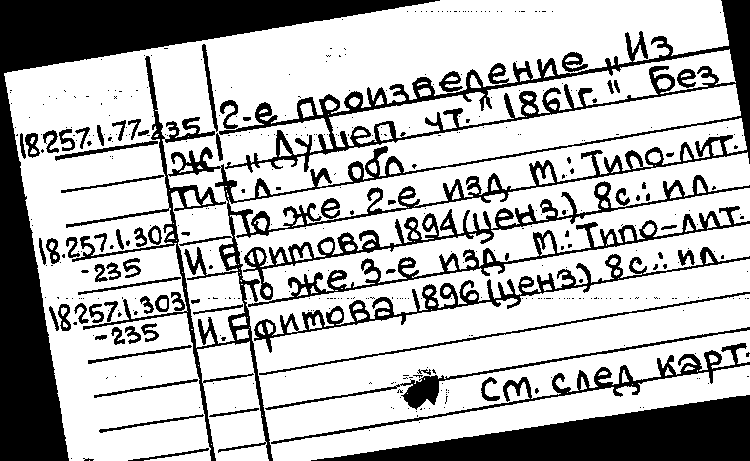 18.257.1.77-235 2-е произведение „Из
ж. „Душеп. чт.” 1861г.". Без
тит.л. и обл.
18.257.1.302- То же. 2-е изд. М.: Типо-лит.
-235 И. Ефитова, 1894(ценз.). 8с.: ил.
18.257.1.303- То же. 3-е изд. М.: Типо-лит.
-235 И. Ефитова, 1896(ценз.). 8с.: ил.
см. след карт.